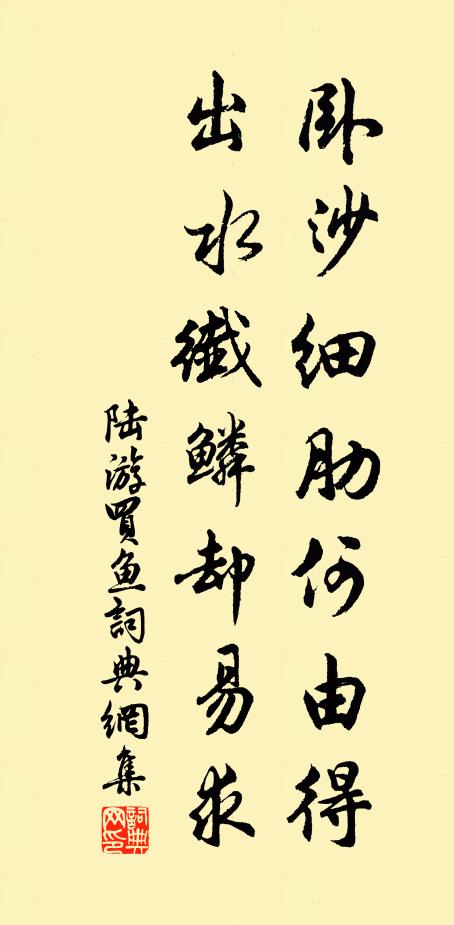 卧沙細肋何由得
出水纖鱗却易求
陸游買魚詞典網集
詞典
网印